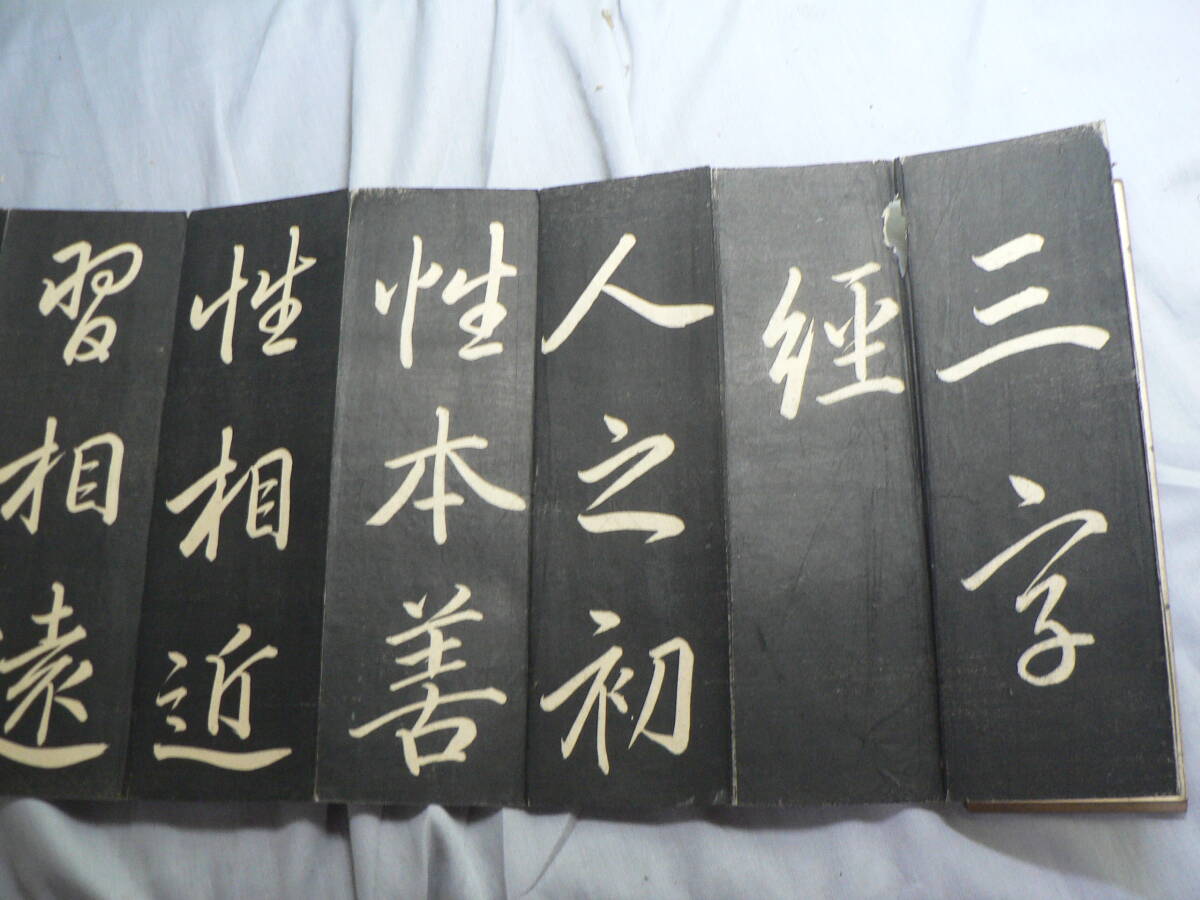 三字
經
人之初
性本善
性相近
習相遠